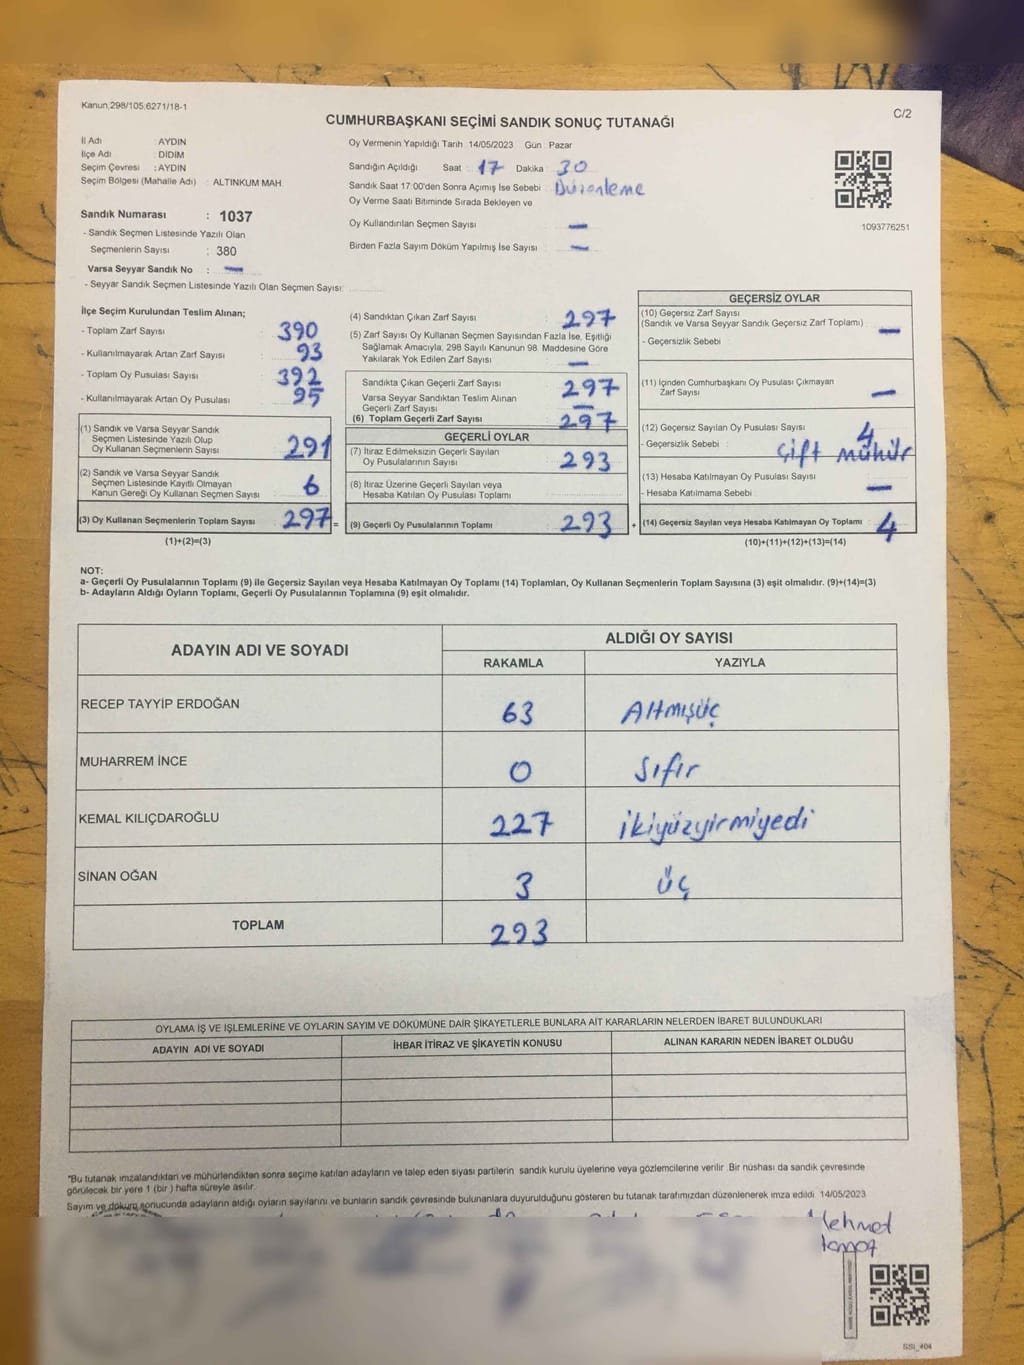 Kanun,298/105,6271/18-1
C/2
CUMHURBAŞKANI SEÇİMİ SANDIK SONUÇ TUTANAĞI
İl Adı : AYDIN
İlçe Adı : DİDİM
Seçim Çevresi : AYDIN
Seçim Bölgesi (Mahalle Adı) : ALTINKUM MAH.
Oy Vermenin Yapıldığı Tarih : 14/05/2023 Gün : Pazar
Sandığın Açıldığı Saat : 17 Dakika : 30
Sandık Saat 17:00'den Sonra Açımış İse Sebebi : Düzenleme
Oy Verme Saati Bitiminde Sırada Bekleyen ve
Oy Kullandırılan Seçmen Sayısı : —
Birden Fazla Sayım Döküm Yapılmış İse Sayısı : —
1093776251
Sandık Numarası : 1037
- Sandık Seçmen Listesinde Yazılı Olan
Seçmenlerin Sayısı : 380
Varsa Seyyar Sandık No : —
- Seyyar Sandık Seçmen Listesinde Yazılı Olan Seçmen Sayısı:
İlçe Seçim Kurulundan Teslim Alınan;
- Toplam Zarf Sayısı : 390
- Kullanılmayarak Artan Zarf Sayısı : 93
- Toplam Oy Pusulası Sayısı : 392
- Kullanılmayarak Artan Oy Pusulası : 95
(1) Sandık ve Varsa Seyyar Sandık
Seçmen Listesinde Yazılı Olup
Oy Kullanan Seçmenlerin Sayısı : 291
(2) Sandık ve Varsa Seyyar Sandık
Seçmen Listesinde Kayıtlı Olmayan
Kanun Gereği Oy Kullanan Seçmen Sayısı : 6
(3) Oy Kullanan Seçmenlerin Toplam Sayısı : 297 =
(1)+(2)=(3)
(4) Sandıktan Çıkan Zarf Sayısı : 297
(5) Zarf Sayısı Oy Kullanan Seçmen Sayısından Fazla İse, Eşitliği
Sağlamak Amacıyla, 298 Sayılı Kanunun 98. Maddesine Göre
Yakılarak Yok Edilen Zarf Sayısı : —
Sandıkta Çıkan Geçerli Zarf Sayısı : 297
Varsa Seyyar Sandıktan Teslim Alınan
Geçerli Zarf Sayısı : —
(6) Toplam Geçerli Zarf Sayısı : 297
GEÇERLİ OYLAR
(7) İtiraz Edilmeksizin Geçerli Sayılan
Oy Pusulalarının Sayısı : 293
(8) İtiraz Üzerine Geçerli Sayılan veya
Hesaba Katılan Oy Pusulası Toplamı :
(9) Geçerli Oy Pusulalarının Toplamı : 293 +
GEÇERSİZ OYLAR
(10) Geçersiz Zarf Sayısı
(Sandık ve Varsa Seyyar Sandık Geçersiz Zarf Toplamı) : —
- Geçersizlik Sebebi :
(11) İçinden Cumhurbaşkanı Oy Pusulası Çıkmayan
Zarf Sayısı : —
(12) Geçersiz Sayılan Oy Pusulası Sayısı : 4
- Geçersizlik Sebebi : Çift mühür
(13) Hesaba Katılmayan Oy Pusulası Sayısı :
- Hesaba Katılmama Sebebi : —
(14) Geçersiz Sayılan veya Hesaba Katılmayan Oy Toplamı : 4
(10)+(11)+(12)+(13)=(14)
NOT:
a- Geçerli Oy Pusulalarının Toplamı (9) ile Geçersiz Sayılan veya Hesaba Katılmayan Oy Toplamı (14) Toplamları, Oy Kullanan Seçmenlerin Toplam Sayısına (3) eşit olmalıdır. (9)+(14)=(3)
b- Adayların Aldığı Oyların Toplamı, Geçerli Oy Pusulalarının Toplamına (9) eşit olmalıdır.
ADAYIN ADI VE SOYADI ALDIĞI OY SAYISI
RAKAMLA YAZIYLA
RECEP TAYYİP ERDOĞAN 63 Altmışüç
MUHARREM İNCE 0 Sıfır
KEMAL KILIÇDAROĞLU 227 ikiyüzyirmiyedi
SİNAN OĞAN 3 üç
TOPLAM 293
OYLAMA İŞ VE İŞLEMLERİNE VE OYLARIN SAYIM VE DÖKÜMÜNE DAİR ŞİKAYETLERLE BUNLARA AİT KARARLARIN NELERDEN İBARET BULUNDUKLARI
ADAYIN ADI VE SOYADI İHBAR İTİRAZ VE ŞİKAYETİN KONUSU ALINAN KARARIN NEDEN İBARET OLDUĞU
"Bu tutanak imzalandıktan ve mühürlendikten sonra seçime katılan adayların ve talep eden siyasi partilerin sandık kurulu üyelerine veya gözlemcilerine verilir. Bir nüshası da sandık çevresinde
görülecek bir yere 1 (bir ) hafta süreyle asılır.
Sayım ve döküm sonucunda adayların aldığı oyların sayılarını ve bunların sandık çevresinde bulunanlara duyurulduğunu gösteren bu tutanak tarafımızdan düzenlenerek imza edildi. 14/05/2023
Mehmet
SSİ_404